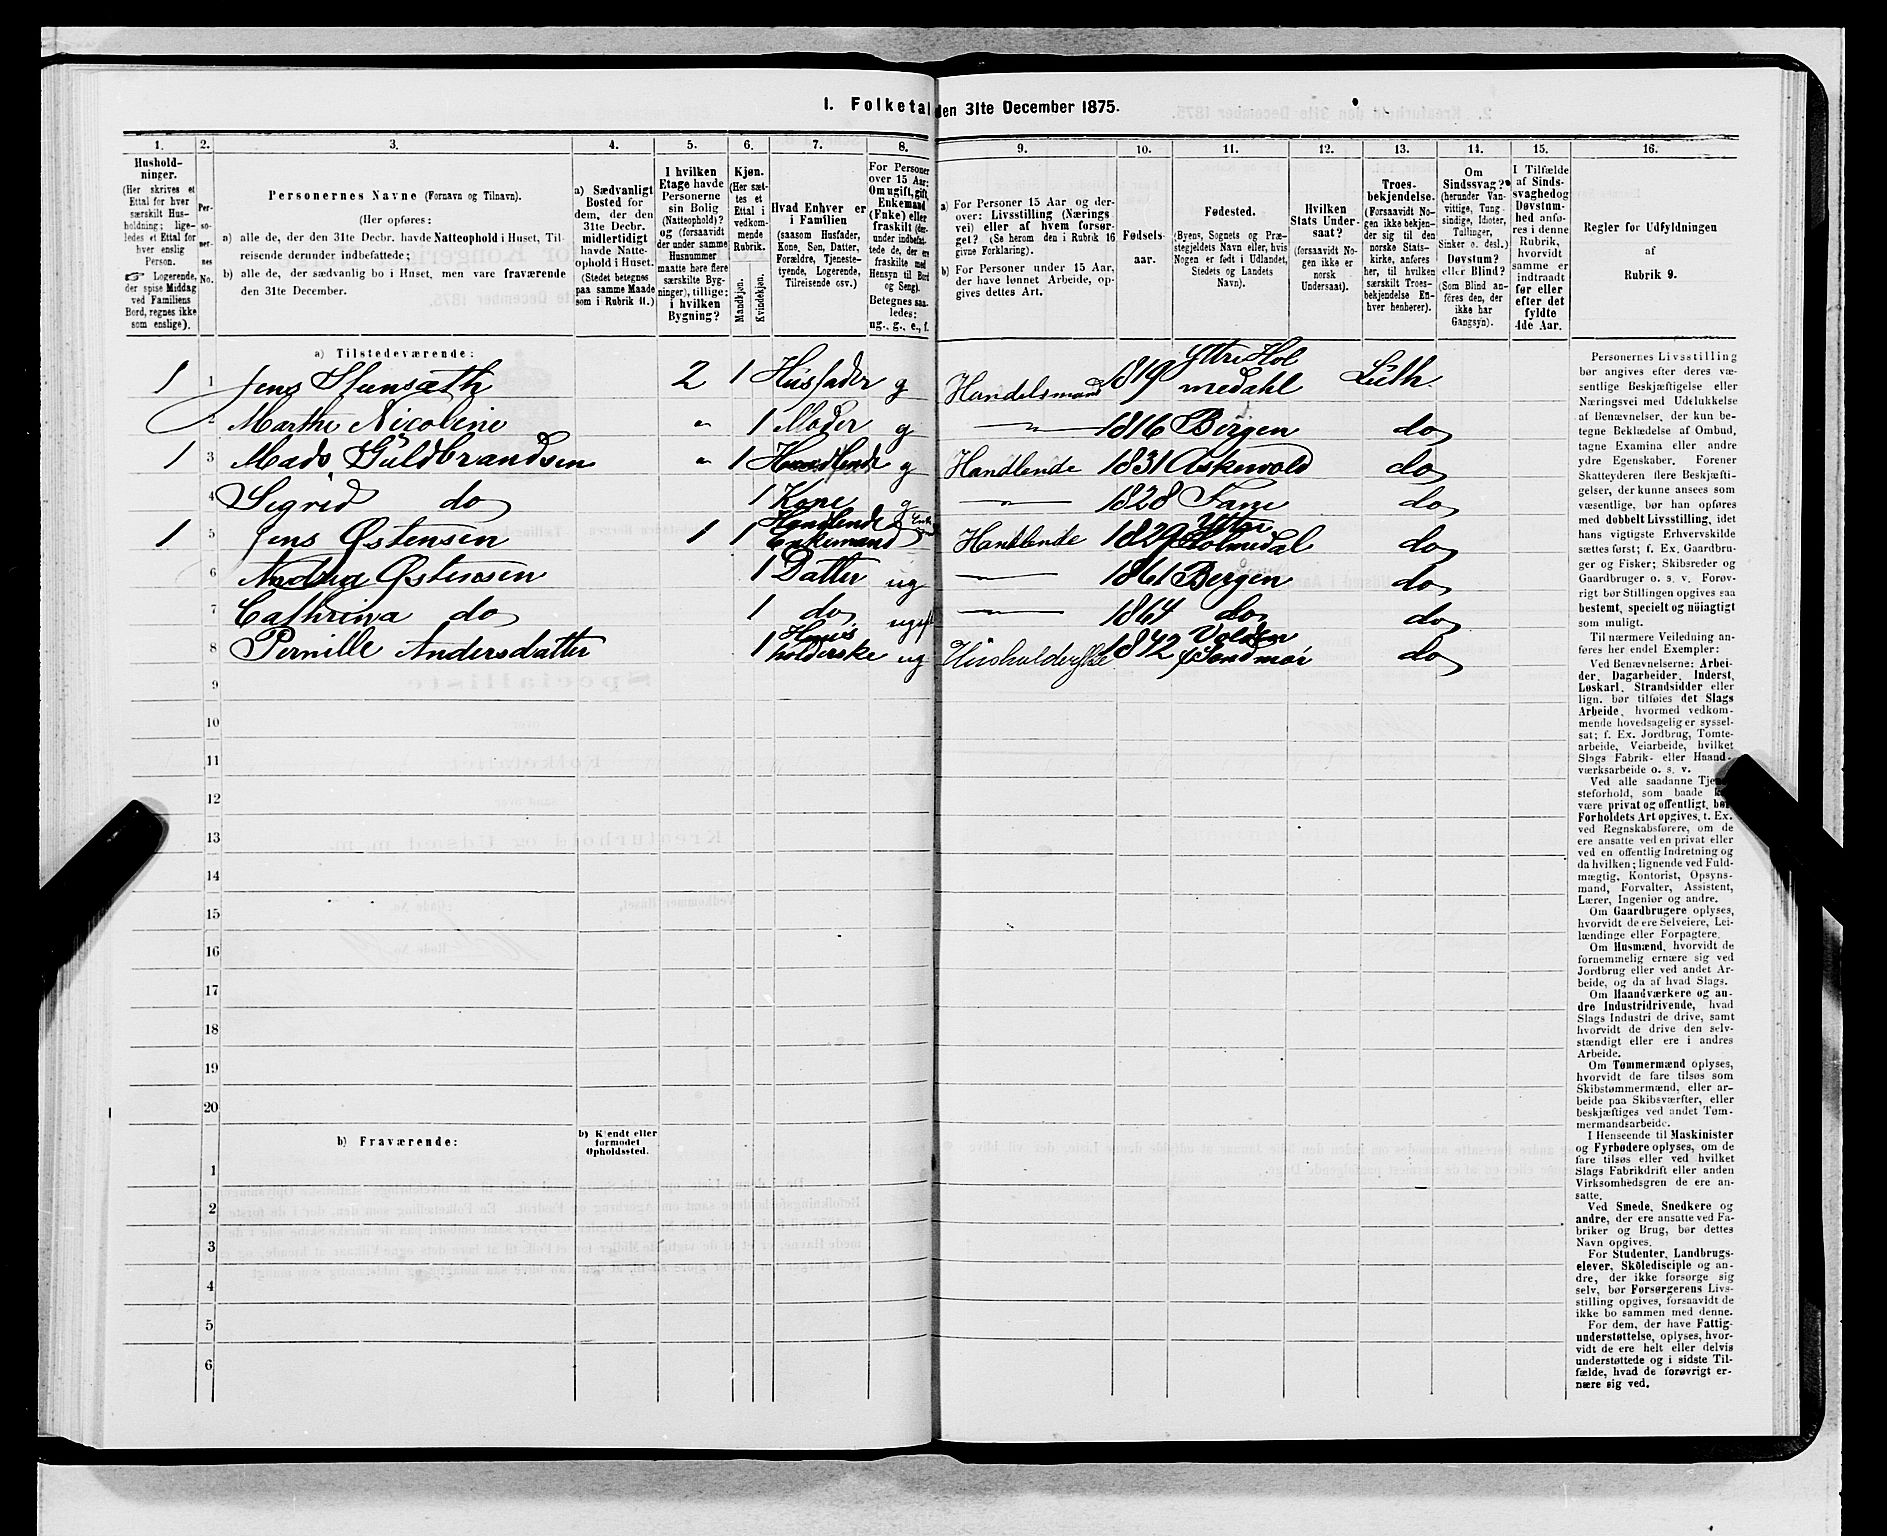 1. Folketal den 31te December 1875.
1. 2. 3. 4. 5. 6. 7. 8. 9. 10. 11. 12. 13. 14. 15. 16.
Hushold-
ninger.
(Her skrives et
Ettal for hver
særskilt Hus-
holdning; lige-
ledes et Ettal for
hver enslig
Person.
☞ Logerende,
der spise Middag
ved Familiens
Bord, regnes ikke
som enslige).
Per-
so-
ner-
nes
No.
Personernes Navne (Fornavn og Tilnavn).
(Her opføres:
a) alle de, der den 31te Decbr. havde Natteophold i Huset, Til-
reisende derunder indbefattede;
b) alle de, der sædvanlig bo i Huset, men vare fraværende
den 31te December.
a) Sædvanligt
Bosted for
dem, der den
31te Decbr.
midlertidigt
havde Natte-
ophold i Huset.
(Stedet betegnes
paa samme Maade
som i Rubrik 11.)
I hvilken
Etage havde
Personerne
sin Bolig
(Natteophold)?
og (forsaavidt
der under samme
Husnummer
maatte høre flere
særskilte Byg-
ninger), tillige:
i hvilken
Bygning?
Kjøn.
(Her sæt-
tes et
Ettal i
vedkom-
mende
Rubrik.
Mandkjøn.
Kvindekjøn.
Hvad Enhver er
i Familien
(saasom Husfader,
Kone, Søn, Datter,
Forældre, Tjeneste-
tyende, Logerende,
Tilreisende osv.)
For Personer
over 15 Aar:
Om ugift, gift,
Enkemand
(Enke) eller
fraskilt (der-
under indbefat-
tede de, der ere
fraskilte med
Hensyn til Bord
og Seng).
Betegnes saa-
ledes:
ug., g., e., f.
a) For Personer 15 Aar og der-
over: Livsstilling (Nærings
vei) eller af hvem forsør-
get? (Se herom den i Rubrik 16
givne Forklaring).
b) For Personer under 15 Aar,
der have lønnet Arbeide, op-
gives dettes Art.
Fødsels-
aar.
Fødested.
(Byens, Sognets og Præ-
stegjeldets Navn eller, hvis
Nogen er født i Udlandet,
Stedets og Landets
Navn).
Hvilken
Stats Under-
saat?
(forsaavidt No-
gen ikke er
norsk
Undersaat).
Troes-
bekjendelse.
(Forsaavidt No-
gen ikke bekjen-
der sig til den
norske Stats-
kirke, anføres
her, til hvilken
særskilt Troes-
bekjendelse En-
hver henhører).
Om
Sindssvag?
(herunder Van-
vittige, Tung-
sindige, Idioter,
Tullinger,
Sinker o. desl.)
Døvstum?
eller Blind?
(Som Blind an-
føres den, der
ikke har
Gangsyn).
I Tilfælde
af Sinds-
svaghed og
Døvstum-
hed anfø-
res i denne
Rubrik,
hvorvidt
samme er
indtraadt
før eller
efter det
fyldte
4de Aar.
Regler for Udfyldningen
af
Rubrik 9.
a) Tilstedeværende:
1 1 Jens 2 1 Husfader g Handelsmand 1819 Yttre Hol
medahl Luth
2 Marthe Nicoline " 1 Moder g " 1816 Bergen do
1 3 Mads Guldbrandsen " 1 Handlende g Handlende 1831 Askevold do
4 Sigrid do 1 Kone g " 1828 Fane do
1 5 Jens Østensen 1 1 Handlende
Enkemand Handlende 1829 Yttre
Holmedal do
6 Andrea Østensen 1 Datter ug " 1861 Bergen do
7 Cathrina do 1 do ugift " 1864 do do
8 Pernille Andersdatter 1 Huus
holderske ug Husholderske 1842 Volden
Søndmør do
9
10
11
12
13
14
15
16
17
18
19
20
b) Fraværende:
b) Kjendt eller
formodet
Opholdssted.
1
2
3
4
5
6
Personernes Livsstilling
bør angives efter deres væ-
sentlige Beskjæftigelse eller
Næringsvei med Udelukkelse
af Benævnelser, der kun be-
tegne Beklædelse af Ombud,
tagne Examina eller andre
ydre Egenskaber. Forener
Skatteyderen flere Beskjæfti-
gelser, der kunne ansees som
væsentlige, bør han opføres
med dobbelt Livsstilling, idet
hans vigtigste Erhvervskilde
sættes først; f. Ex. Gaardbru-
ger og Fisker; Skibsreder og
Gaardbruger o. s. v. Forøv-
rigt bør Stillingen opgives saa
bestemt, specielt og nøiagtigt
som muligt.
Til nærmere Veiledning an-
føres her endel Exempler:
Ved Benævnelserne: Arbei-
der, Dagarbeider, Inderst,
Løskarl, Strandsidder eller
lign. bør tilføies det Slags
Arbeide, hvormed vedkom-
mende hovedsagelig er syssel-
sat; f. Ex. Jordbrug, Tomte-
arbeide, Veiarbeide, hvilket
Slags Fabrik- eller Haand-
værksarbeide o. s. v.
Ved alle saadanne Tjene-
steforhold, som baade kan
være privat og offentligt, bør
Forholdets Art opgives, t. Ex.
ved Regnskabsførere, om de
ere ansatte ved en privat eller
ved en offentlig Indretning og
da hvilken; lignende ved Fuld-
mægtig, Kontorist, Opsyns-
mand, Forvalter, Assistent,
Lærer, Ingeniør og andre.
Om Gaardbrugere oplyses,
hvorvidt de ere Selveiere, Lei-
lændinge eller Forpagtere.
Om Husmænd, hvorvidt de
fornemmelig ernære sig ved
Jordbrug eller ved andet Ar-
beide, og da af hvad Slags.
Om Haandværkere og an-
dre Industridrivende, hvad
Slags Industri de drive, samt
hvorvidt de drive den selv-
stændigt eller ere i andres
Arbeide.
Om Tømmermænd oplyses,
hvorvidt de fare tilsøs som
Skibstømmermænd, eller ar-
beide paa Skibsværfter, eller
beskjæftiges ved andet Tøm-
mermandsarbeide.
I Henseende til Maskinister
og Fyrbødere oplyses, om de
fare tilsøs eller ved hvilket
Slags Fabrikdrift eller anden
Virksomhedsgren de ere an-
satte.
Ved Smede, Snedkere og
andre, der ere ansatte ved Fa-
briker og Brug, bør dettes
Navn opgives.
For Studenter, Landbrugs-
elever, Skoledisciple og an-
dre, der ikke forsørge sig
selv, bør Forsørgerens Livs-
stilling opgives, forsaavidt de
ikke bo sammen med denne.
For dem, der have Fattig-
understøttelse, oplyses, hvor-
vidt de ere helt eller delvis
understøttede og i sidste Til-
fælde, hvad de forøvrigt er-
nære sig ved.